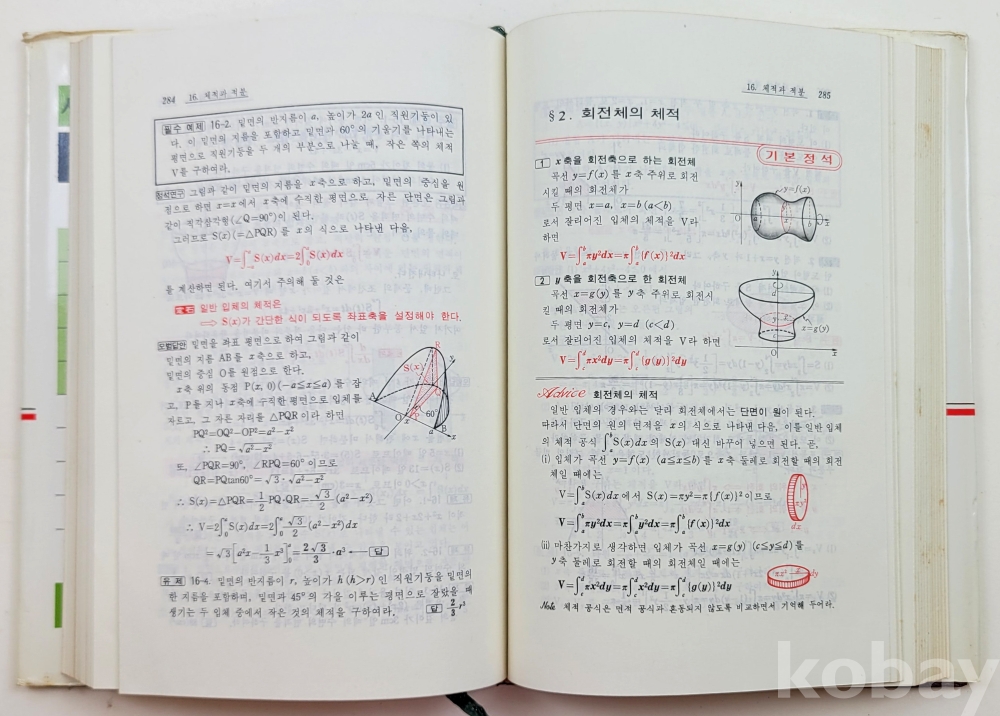 284 16. 체적과 적분
필수 예제 16-2. 밑면의 반지름이 a, 높이가 2a인 직원기둥이 있
다. 이 밑면의 지름을 포함하고 밑면과 60°의 기울기를 나타내는
평면으로 직원기둥을 두 개의 부분으로 나눌 때, 작은 쪽의 체적
V를 구하여라.
정석연구 그림과 같이 밑면의 지름을 x축으로 하고, 밑면의 중심을 원
점으로 하면 x=x에서 x축에 수직한 평면으로 자른 단면은 그림과
같이 직각삼각형(∠Q=90°)이 된다.
그러므로 S(x)(=△PQR)를 x의 식으로 나타낸 다음,
V=∫S(x)dx=2∫S(x)dx
를 계산하면 된다. 여기서 주의해 둘 것은
정석 일반 입체의 체적은
⟹ S(x)가 간단한 식이 되도록 좌표축을 설정해야 한다.
모범답안 밑면을 좌표 평면으로 하여 그림과 같이
밑면의 지름 AB를 x축으로 하고,
밑면의 중심 O를 원점으로 한다.
x축 위의 동점 P(x, 0)(-a≦x≦a)를 잡
고, P를 지나 x축에 수직한 평면으로 입체를
자르고, 그 자른 자리를 △PQR이라 하면
PQ²=OQ²-OP²=a²-x²
∴ PQ=√(a²-x²)
또, ∠PQR=90°, ∠RPQ=60°이므로
QR=PQtan60°=√3·√(a²-x²)
∴ S(x)=△PQR=1/2 PQ·QR=√3/2 (a²-x²)
∴ V=2∫₀ᵃS(x)dx=2∫₀ᵃ √3/2 (a²-x²)dx
=√3[a²x-1/3 x³]₀ᵃ=2√3/3·a³ ← 답
R
S(x)
A
O
P
Q
60°
x
a
B
y
x
유제 16-4. 밑면의 반지름이 r, 높이가 h(h>r)인 직원기둥을 밑면의
한 지름을 포함하며, 밑면과 45°의 각을 이루는 평면으로 잘랐을 때
생기는 두 입체 중에서 작은 것의 체적을 구하여라. 답 2/3 r³
16. 체적과 적분 285
§2. 회전체의 체적
기본정석
1 x축을 회전축으로 하는 회전체
곡선 y=f(x)를 x축 주위로 회전
시킬 때의 회전체가
두 평면 x=a, x=b(a<b)
로서 잘리어진 입체의 체적을 V라
하면
V=∫ₐᵇπy²dx=π∫ₐᵇ{f(x)}²dx
y
y=f(x)
O
a
b
x
2 y축을 회전축으로 한 회전체
곡선 x=g(y)를 y축 주위로 회전시
킬 때의 회전체가
두 평면 y=c, y=d (c<d)
로서 잘리어진 입체의 체적을 V라 하면
V=∫πx²dy=π∫{g(y)}²dy
d
x=g(y)
O
x
Advice 회전체의 체적
일반 입체의 경우와는 달리 회전체에서는 단면이 원이 된다.
따라서 단면의 원의 면적을 x의 식으로 나타낸 다음, 이를 일반 입체
의 체적 공식 ∫ₐᵇS(x)dx의 S(x) 대신 바꾸어 넣으면 된다. 곧,
(i) 입체가 곡선 y=f(x) (a≦x≦b)를 x축 둘레로 회전할 때의 회전
체일 때에는
V=∫ₐᵇS(x)dx에서 S(x)=πy²=π{f(x)}²이므로
V=∫ₐᵇπy²dx=π∫ₐᵇy²dx=π∫ₐᵇ{f(x)}²dx
πy²
dx
(ii) 마찬가지로 생각하면 입체가 곡선 x=g(y) (c≦y≦d)를
y축 둘레로 회전할 때의 회전체일 때에는
V=∫πx²dy=π∫x²dy=π∫{g(y)}²dy
πx²
dy
Note 체적 공식은 면적 공식과 혼동되지 않도록 비교하면서 기억해 두어라.
kobay